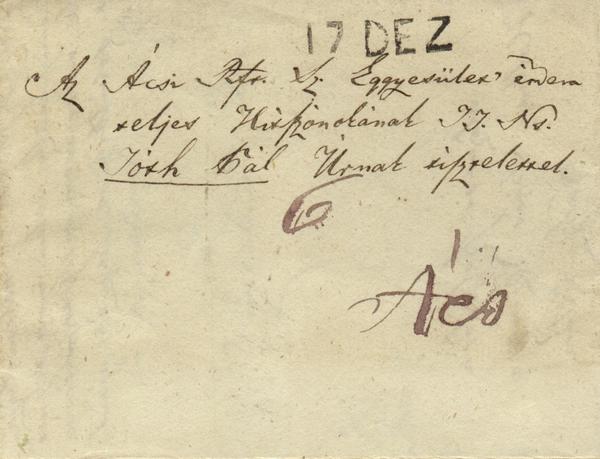 17 DEZ
Az Ácsi Rfr. Sz. Eggyesület' érdem
teljes Hírszónokának T. T. Ns.
Tóth Pál Úrnak tisztelettel.
6
Ács